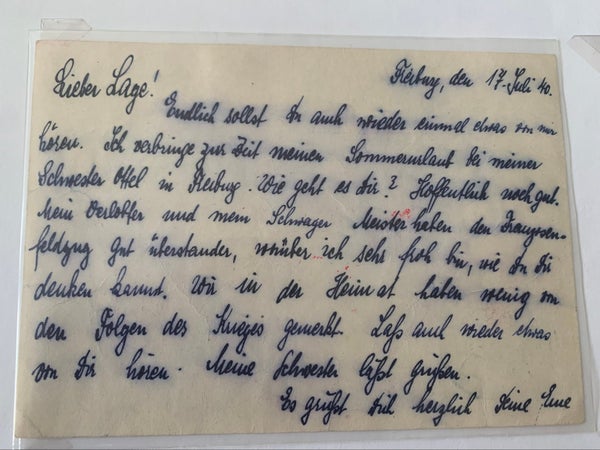 Freiburg, den 17. Juli 40.
Lieber Lage!
Endlich sollst Du auch wieder einmal etwas von mir
hören. Ich verbringe zur Zeit meinen Sommerurlaub bei meiner
Schwester Ottel in Freiburg. Wie geht es Dir? Hoffentlich noch gut.
Mein Verlobter und mein Schwager Meister haben den Franzosen-
feldzug gut überstanden, worüber ich sehr froh bin, wie Du Dir
denken kannst. Wir in der Heimat haben wenig von
den Folgen des Krieges gemerkt. Laß auch wieder etwas
von Dir hören. Meine Schwester läßt grüßen.
Es grüßt Dich herzlich Deine